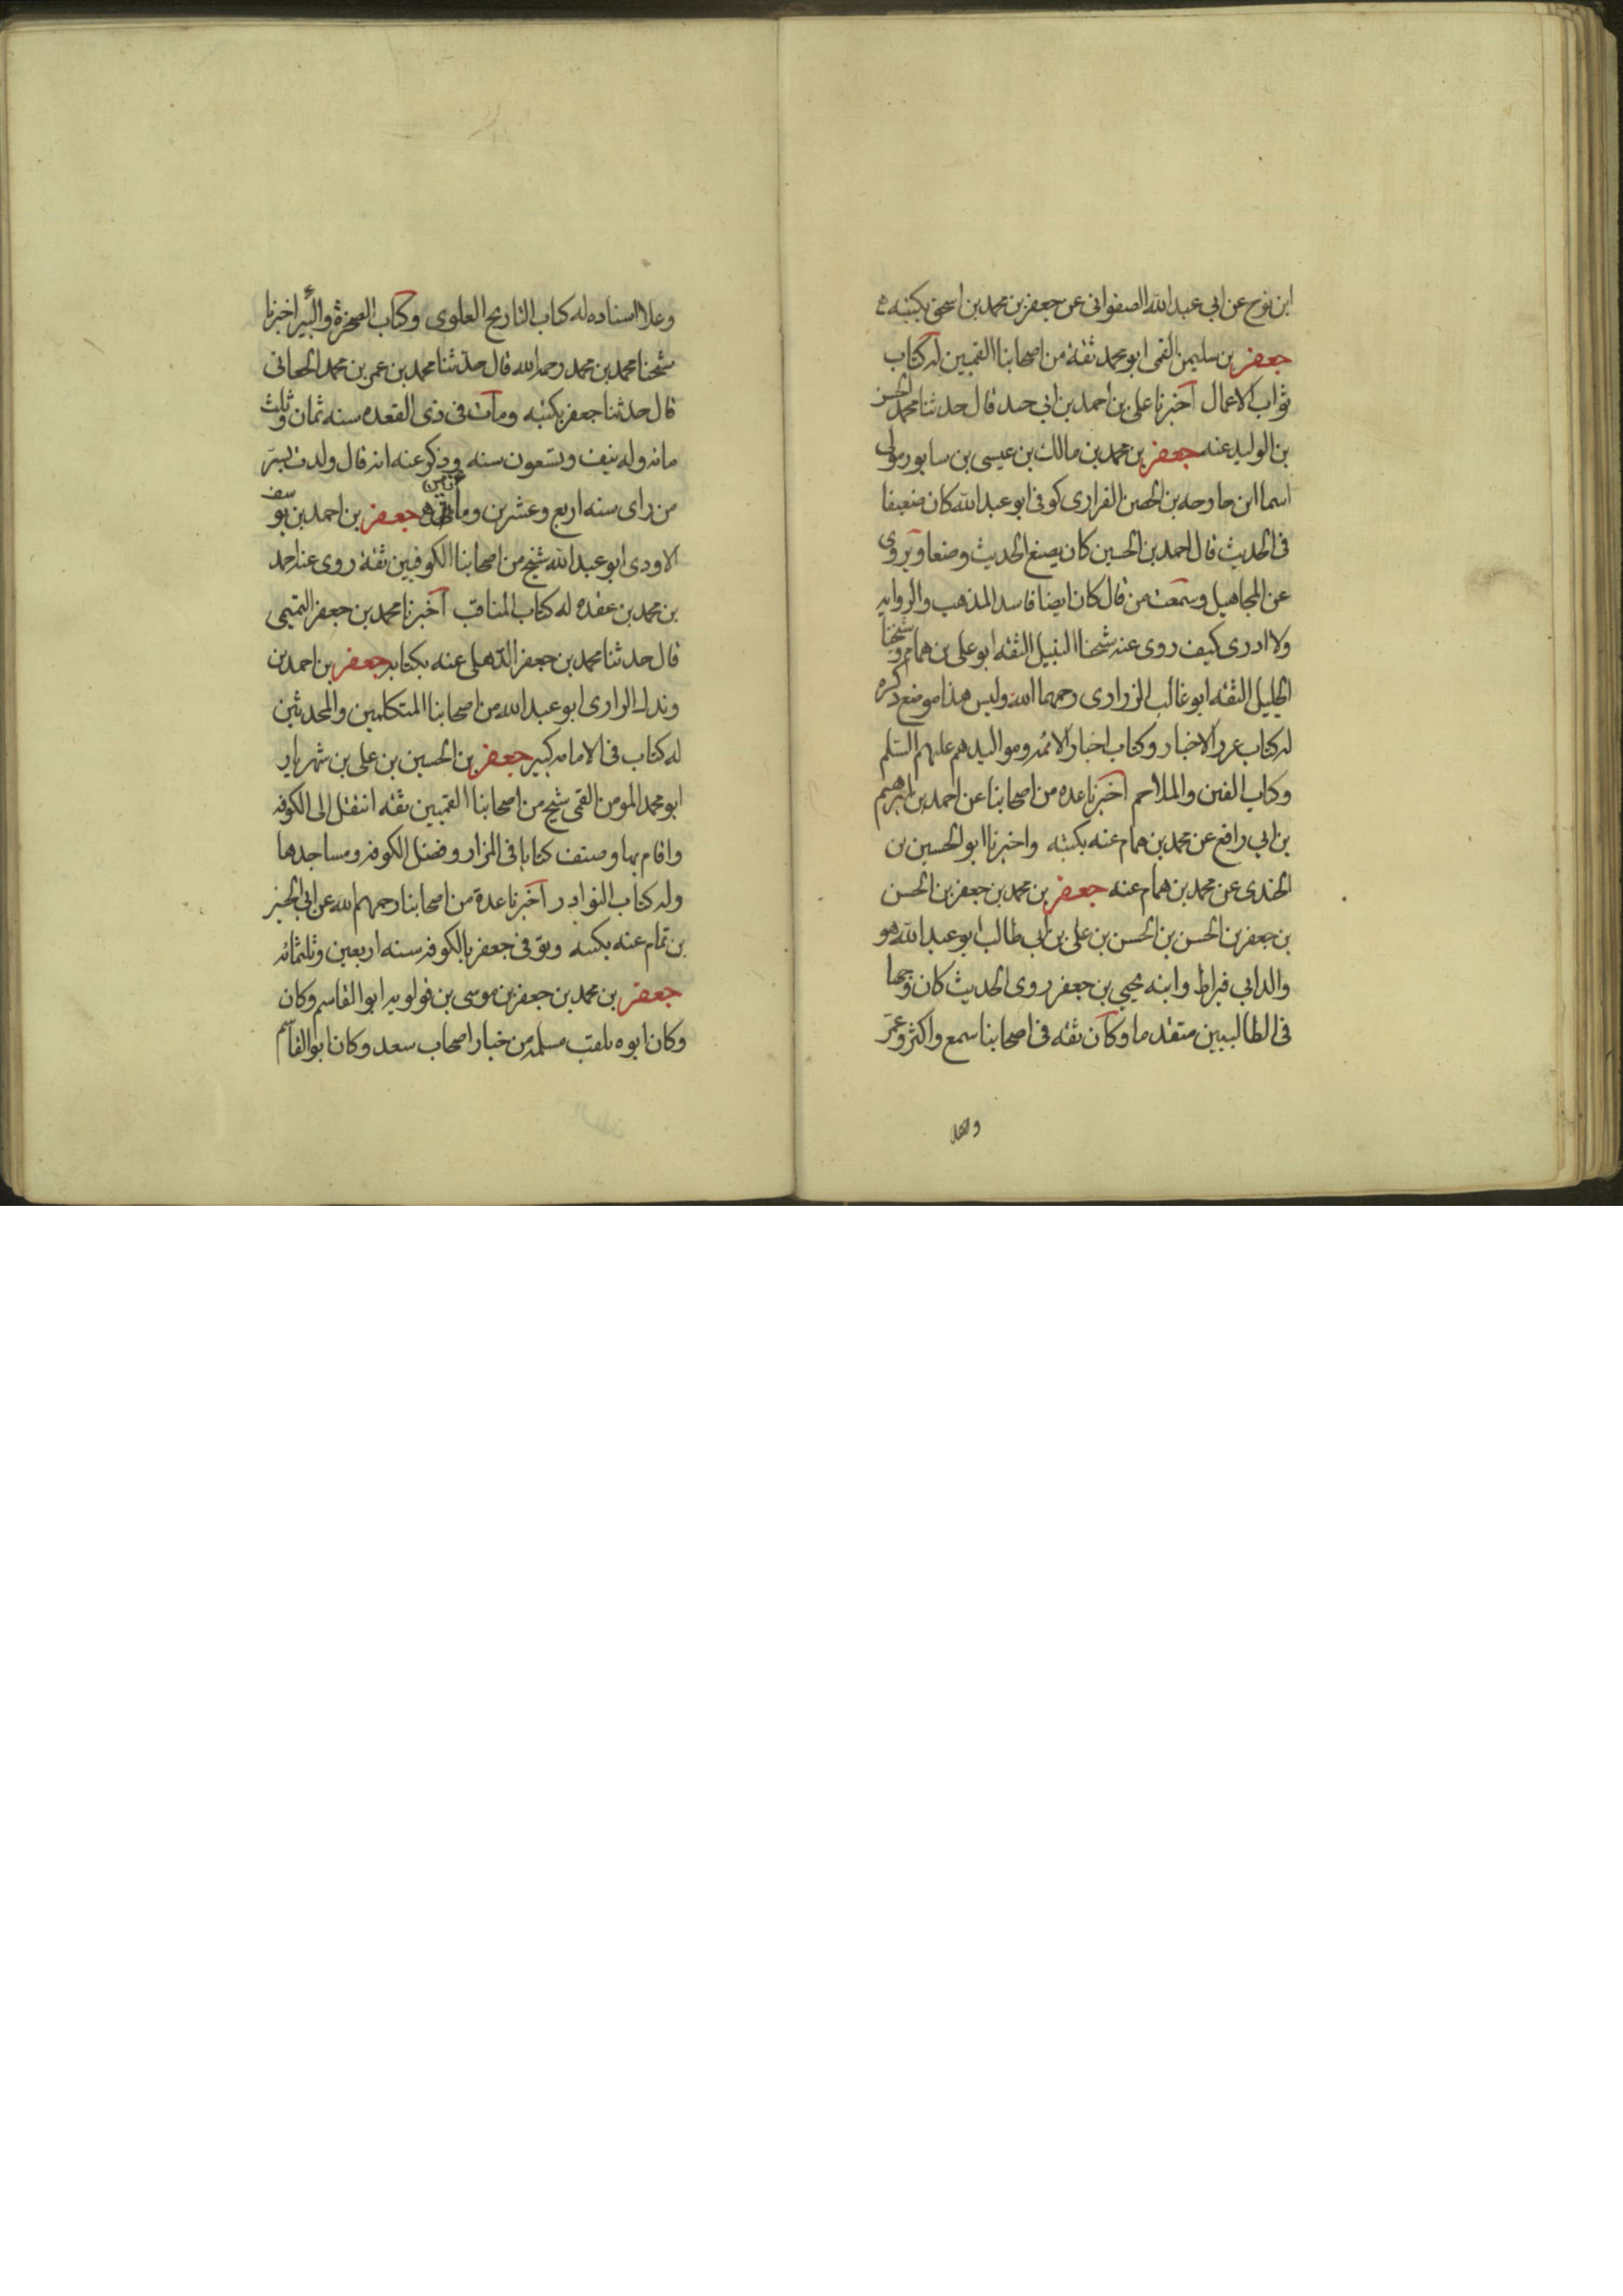 ابن نوح عن ابي عبد الله الصفواني عن جعفر بن محمد بن اسحق بكتبه
جعفر بن سليمن القمي ابو محمد ثقة من اصحابنا القميين له كتاب
ثواب الاعمال اخبرنا علي بن احمد بن ابي حيد قال حدثنا محمد بن الحسن
بن الوليد عنه جعفر بن محمد بن مالك بن عيسى بن سابور مولى
اسما ابن خارجه بن الحصن الفزاري كوفي ابو عبد الله كان ضعيفا
في الحديث قال احمد بن الحسين كان يضع الحديث وضعا ويروي
عن المجاهيل وسمعت من قال كان ايضا فاسد المذهب والروايه
ولا ادري كيف روى عنه شيخنا النبيل الثقه ابو علي بن همام وشيخنا
الجليل الثقه ابو غالب الزراري رحمهما الله وليس هذا موضع ذكره
له كتاب غرر الاخبار وكتاب اخبار الائمه ومواليدهم عليهم السلم
وكتاب الفتن والملاحم اخبرنا عده من اصحابنا عن احمد بن ابرهيم
بن ابي رافع عن محمد بن همام عنه بكتبه واخبرنا ابو الحسين بن
الجندي عن محمد بن همام عنه جعفر بن محمد بن جعفر بن الحسن
بن جعفر بن الحسن بن الحسن بن علي بن ابي طالب ابو عبد الله هو
والد ابي قيراط وابنه يحيي بن جعفر روى الحديث كان وجها
في الطالبيين متقدما وكان ثقه في اصحابنا سمع واكثر وعمر
وعلا
وعلا اسناده له كتاب التاريخ العلوي وكتاب الصخرة والبئر اخبرنا
شيخنا محمد بن محمد رحمه الله قال حدثنا محمد بن عمر بن محمد الجعابي
قال حدثنا جعفر بكتبه ومات في ذي القعده سنه ثمان وثلث
مائه وله نيف وتسعون سنه وذكر عنه انه قال ولدت بسر
من راى سنه اربع وعشرين ومائتين جعفر بن احمد بن يوسف
الاودي ابو عبد الله شيخ من اصحابنا الكوفيين ثقة روى عنه احمد
بن محمد بن عقده له كتاب المناقب اخبرنا محمد بن جعفر التميمي
قال حدثنا محمد بن جعفر الذهلي عنه بكتابه جعفر بن احمد بن
وندك الرازي ابو عبد الله من اصحابنا المتكلمين والمحدثين
له كتاب في الامامه كبير جعفر بن الحسين بن علي بن شهريار
ابو محمد المومن القمي شيخ من اصحابنا القميين ثقه انتقل الى الكوفه
واقام بها وصنف كتابا في المزار وفضل الكوفه ومساجدها
وله كتاب النوادر اخبرنا عدة من اصحابنا رحمهم الله عن ابي الحسين
بن تمام عنه بكتبه وتوفي جعفر بالكوفه سنه اربعين وثلثمائه
جعفر بن محمد بن جعفر بن موسى بن قولويه ابو القاسم وكان
وكان ابوه يلقب مسلمه من خيار اصحاب سعد وكان ابو القاسم